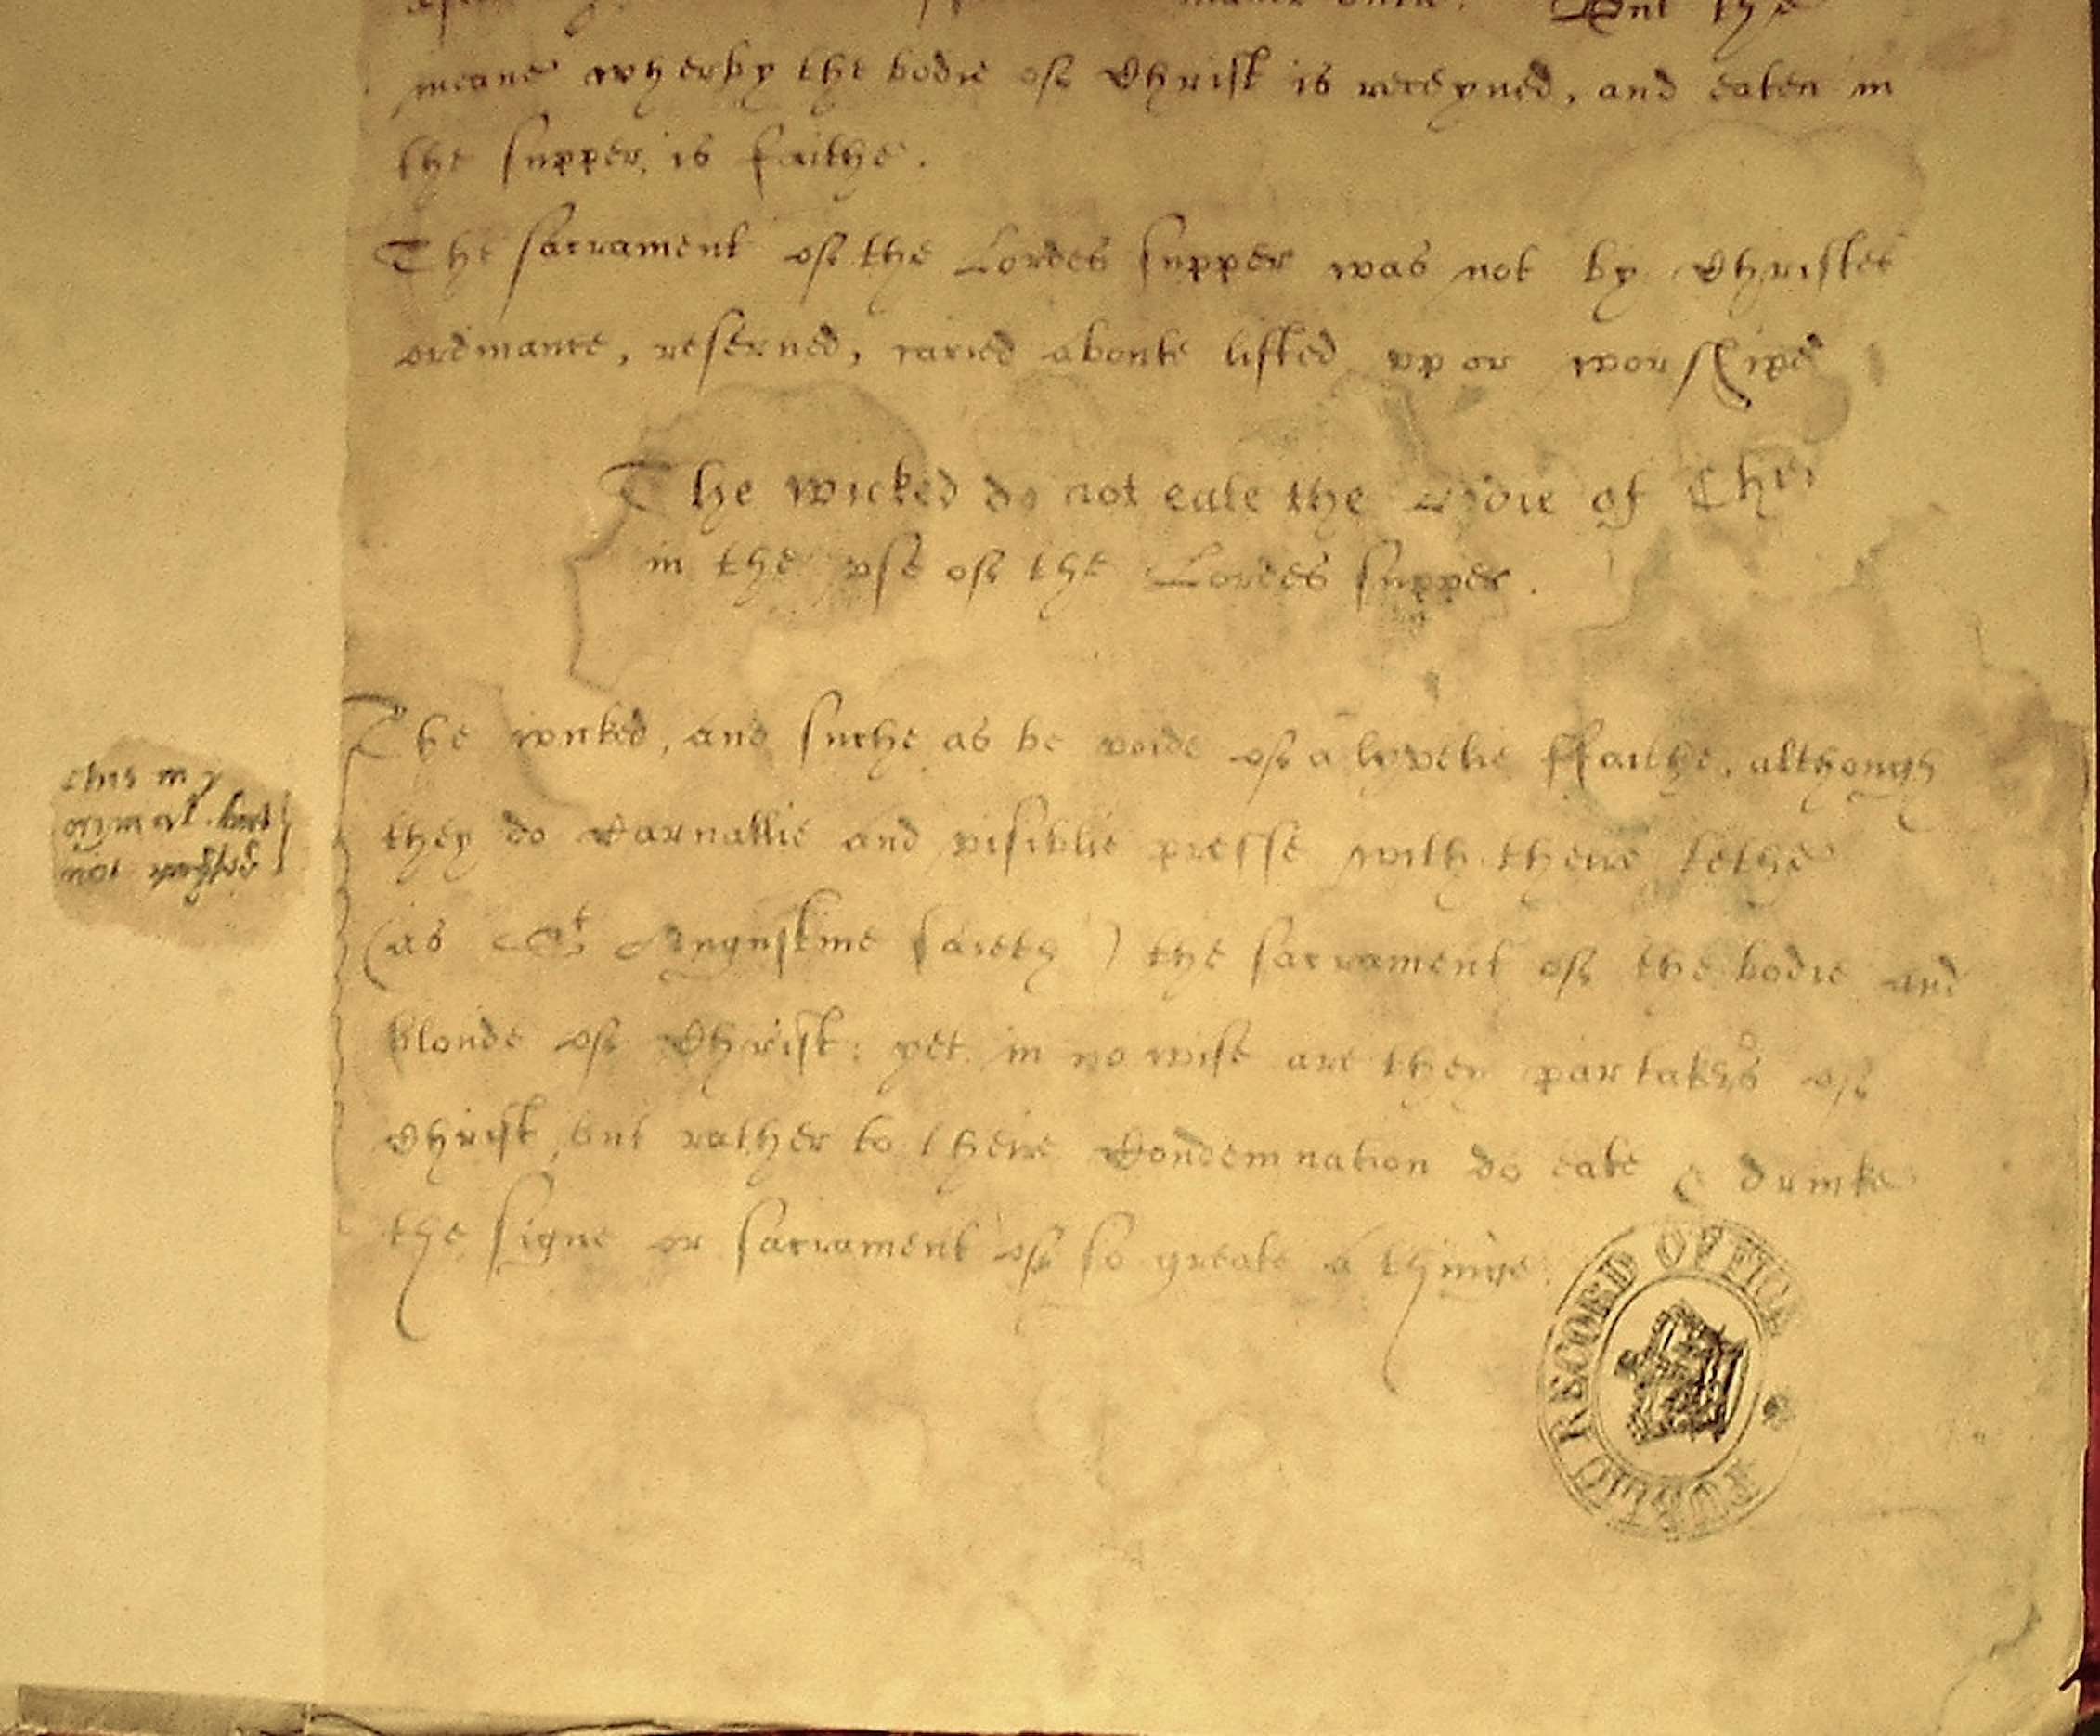 And the
meane wherby the bodie of Christ is receyued, and eaten in
the supper, is faithe.
The sacrament of the Lordes supper was not by Christes
ordinance, reserued, caried aboute lifted vp or worshiped
The wicked do not eate the bodie of Chri
in the vse of the Lordes supper.
The wicked, and suche as be voide of a lyvelie ffaithe, although
they do carnallie and visiblie presse with theire tethe
(as St Augustine saieth) the sacrament of the bodie and
bloude of Christ: yet in no wise are they partakers of
Christ, but rather to theire Condemnation do eate & drinke
the signe or sacrament of so greate a thinge.
this in ye
original
not
PUBLIC RECORD OFFICE